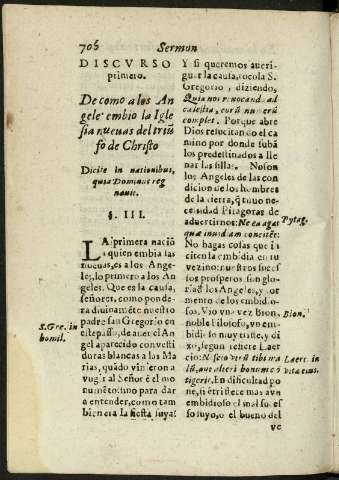 706 Sermon
DISCVRSO
primero.
De como a los An
gele embio la Igle
sia nueuas del triũ
fo de Christo
Dicite in nationibus,
quia Dominus reg
nauit.
§. III.
LA primera naciõ
a quien embia las
nueuas, es a los Ange-
les, lo primero a los An
geles. Que es la causa,
señores, como ponde-
ra diuinamẽte nuestro
padre san Gregorio en
este passo, de auer el An
gel aparecido con vesti
duras blancas a las Ma
rias, quãdo vinieron a
vngir al Señor ẽ el mo
numẽto: sino para dar
a entender, como tam
bien era la fiesta suya?
S. Gre. in
homil.
Y si queremos aueri-
guar la causa, tocola S.
Gregorio, diziendo,
Quia nos reuocando ad
cælestia, eorũ numerũ
complet. Porque abre
Dios resucitando el ca
mino por donde subã
los predestinados a lle
nar las sillas. No son
los Angeles de las con
dicion de los hombres
de la tierra, q̃ tuuo ne-
cesidad Pitagoras de
aduertirnos: Ne ea agas
quæ inuidiam concitẽt:
No hagas cosas que in
citen la embidia en tu
vezino: nuestros suces
sos prosperos son glo-
ria a los Angeles, y tor
mento de los embidio-
sos. Vio vna vez Bion,
noble Filosofo, vn em-
bidioso muy triste, y di
xo, segun refiere Laer
cio: Nescio verũ tibi ma
lũ, aut alteri bonum cõ
tigerit. En dificultad po
ne, si entristece mas a vn
embidioso el mal suces
so suyo, o el bueno del
ve
Pytag.
Bion.
Laert. in
vita eius.